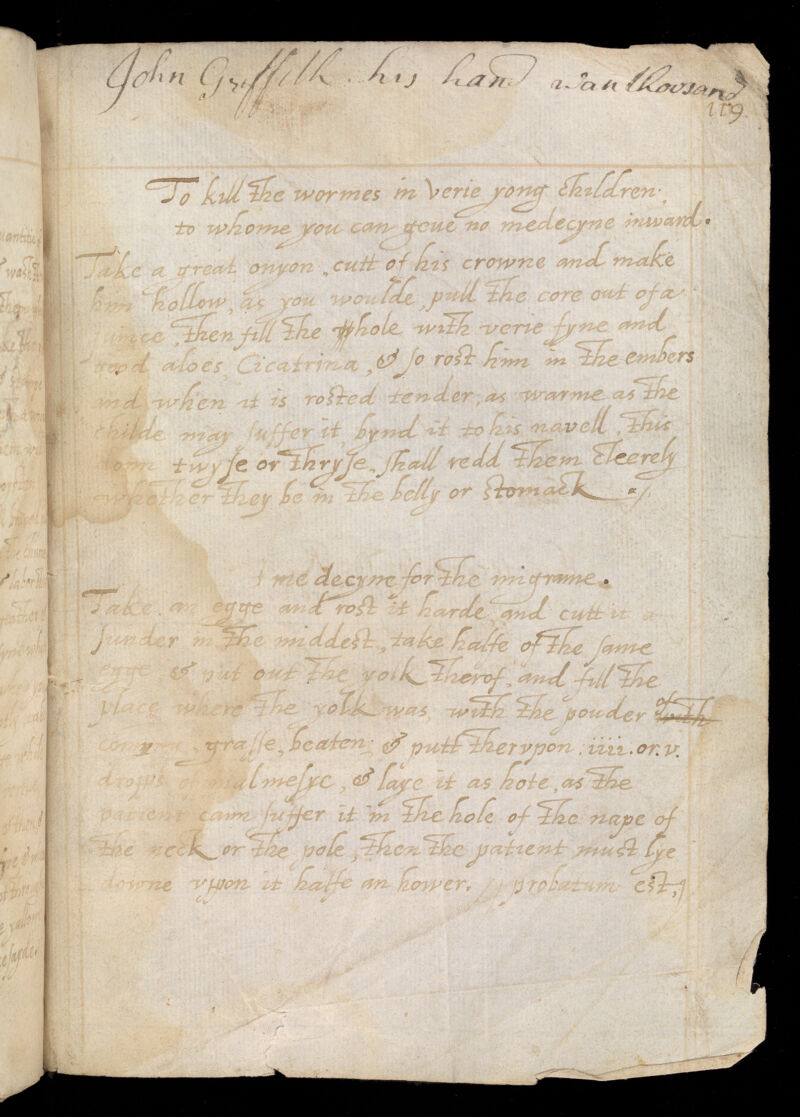 John Griffith his hand wan thovsand
119
To kill the wormes in verie yong children
to whome you can geue no medecyne inward.
Take a great onyon, cutt of his crowne and make
him hollow, as you woulde, pull the core out of a
quince, then fill the whole with verie fyne and
good aloes, Cicatrina, & so rost him in the embers
and when it is rosted tender, as warme as the
childe may suffer it, bynd it to his navell, this
donn twyse or thryse, shall redd them cleerely
whether they be in the belly or stomack ./
A medecyne for the migrame.
Take an egge and rost it harde, and cutt it a
sunder in the middest, take halfe of the same
egge & put out the yolk therof, and fill the
place where the yolk was, with the pouder of with
grasse, beaten, & putt thervpon .iiii. or .v.
dropps of malmesye, & laye it as hote, as the
patient cann suffer it in the hole of the nape of
the neck or the pole, then the patient must lye
downe vpon it halfe an hower. // probatum est,